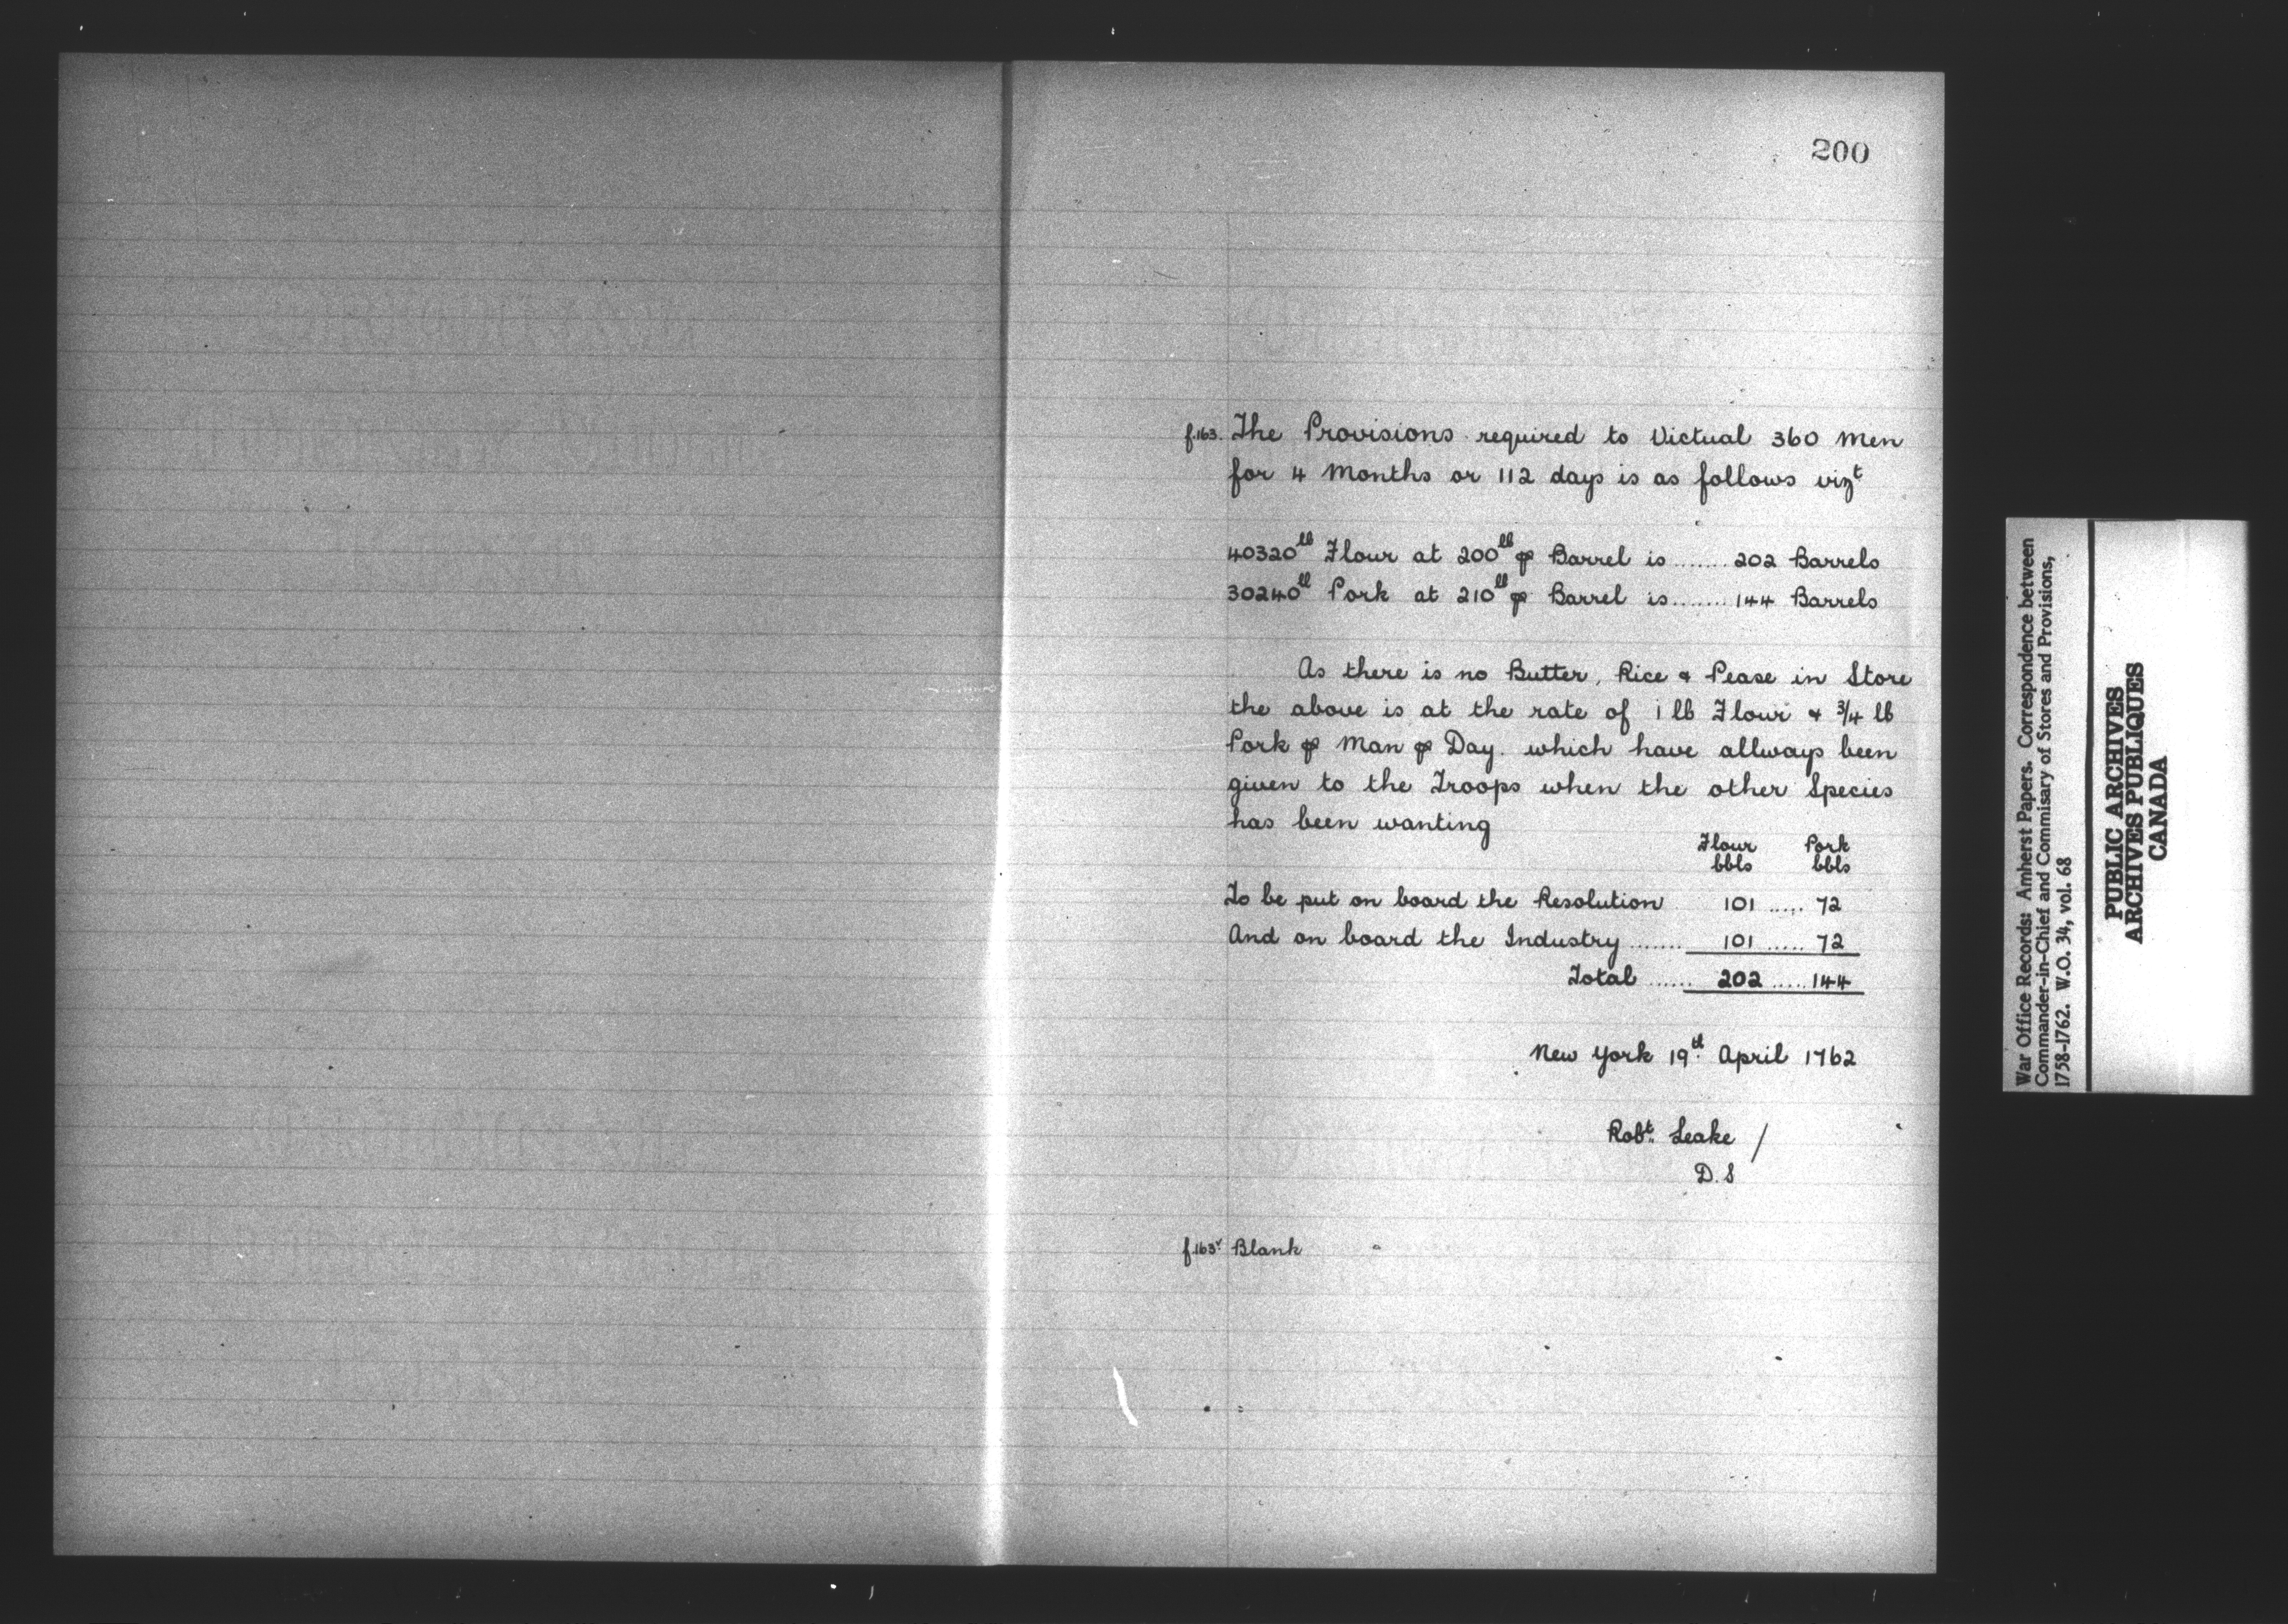 200
f.163. The Provisions required to Victual 360 Men
for 4 Months or 112 days is as follows vizt
40320lb Flour at 200lb ⅌ Barrel is ....... 202 Barrels
30240lb Pork at 210lb ⅌ Barrel is ....... 144 Barrels
As there is no Butter, Rice & Pease in Store
the above is at the rate of 1 lb Flour & 3/4 lb
Pork ⅌ Man ⅌ Day. which have allways been
given to the Troops when the other Species
has been wanting
Flour Pork
bbls bbls
To be put on board the Resolution 101 ..... 72
And on board the Industry ....... 101 ..... 72
Total ...... 202 ..... 144
New York 19th April 1762
Robt. Leake /
D.S
f.163v Blank
War Office Records: Amherst Papers. Correspondence between
Commander-in-Chief and Commisary of Stores and Provisions,
1758-1762. W.O. 34, vol. 68
PUBLIC ARCHIVES
ARCHIVES PUBLIQUES
CANADA